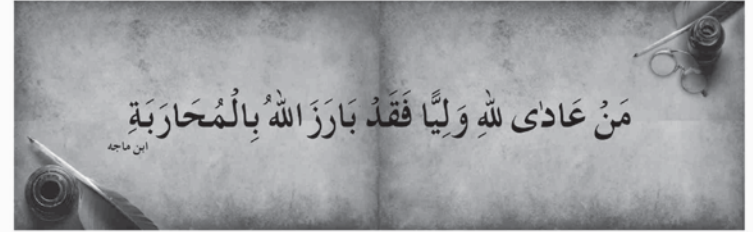 مَنْ عَادٰى لِلّٰهِ وَلِيًّا فَقَدْ بَارَزَ اللّٰهُ بِالْمُحَارَبَةِ
ابن ماجه